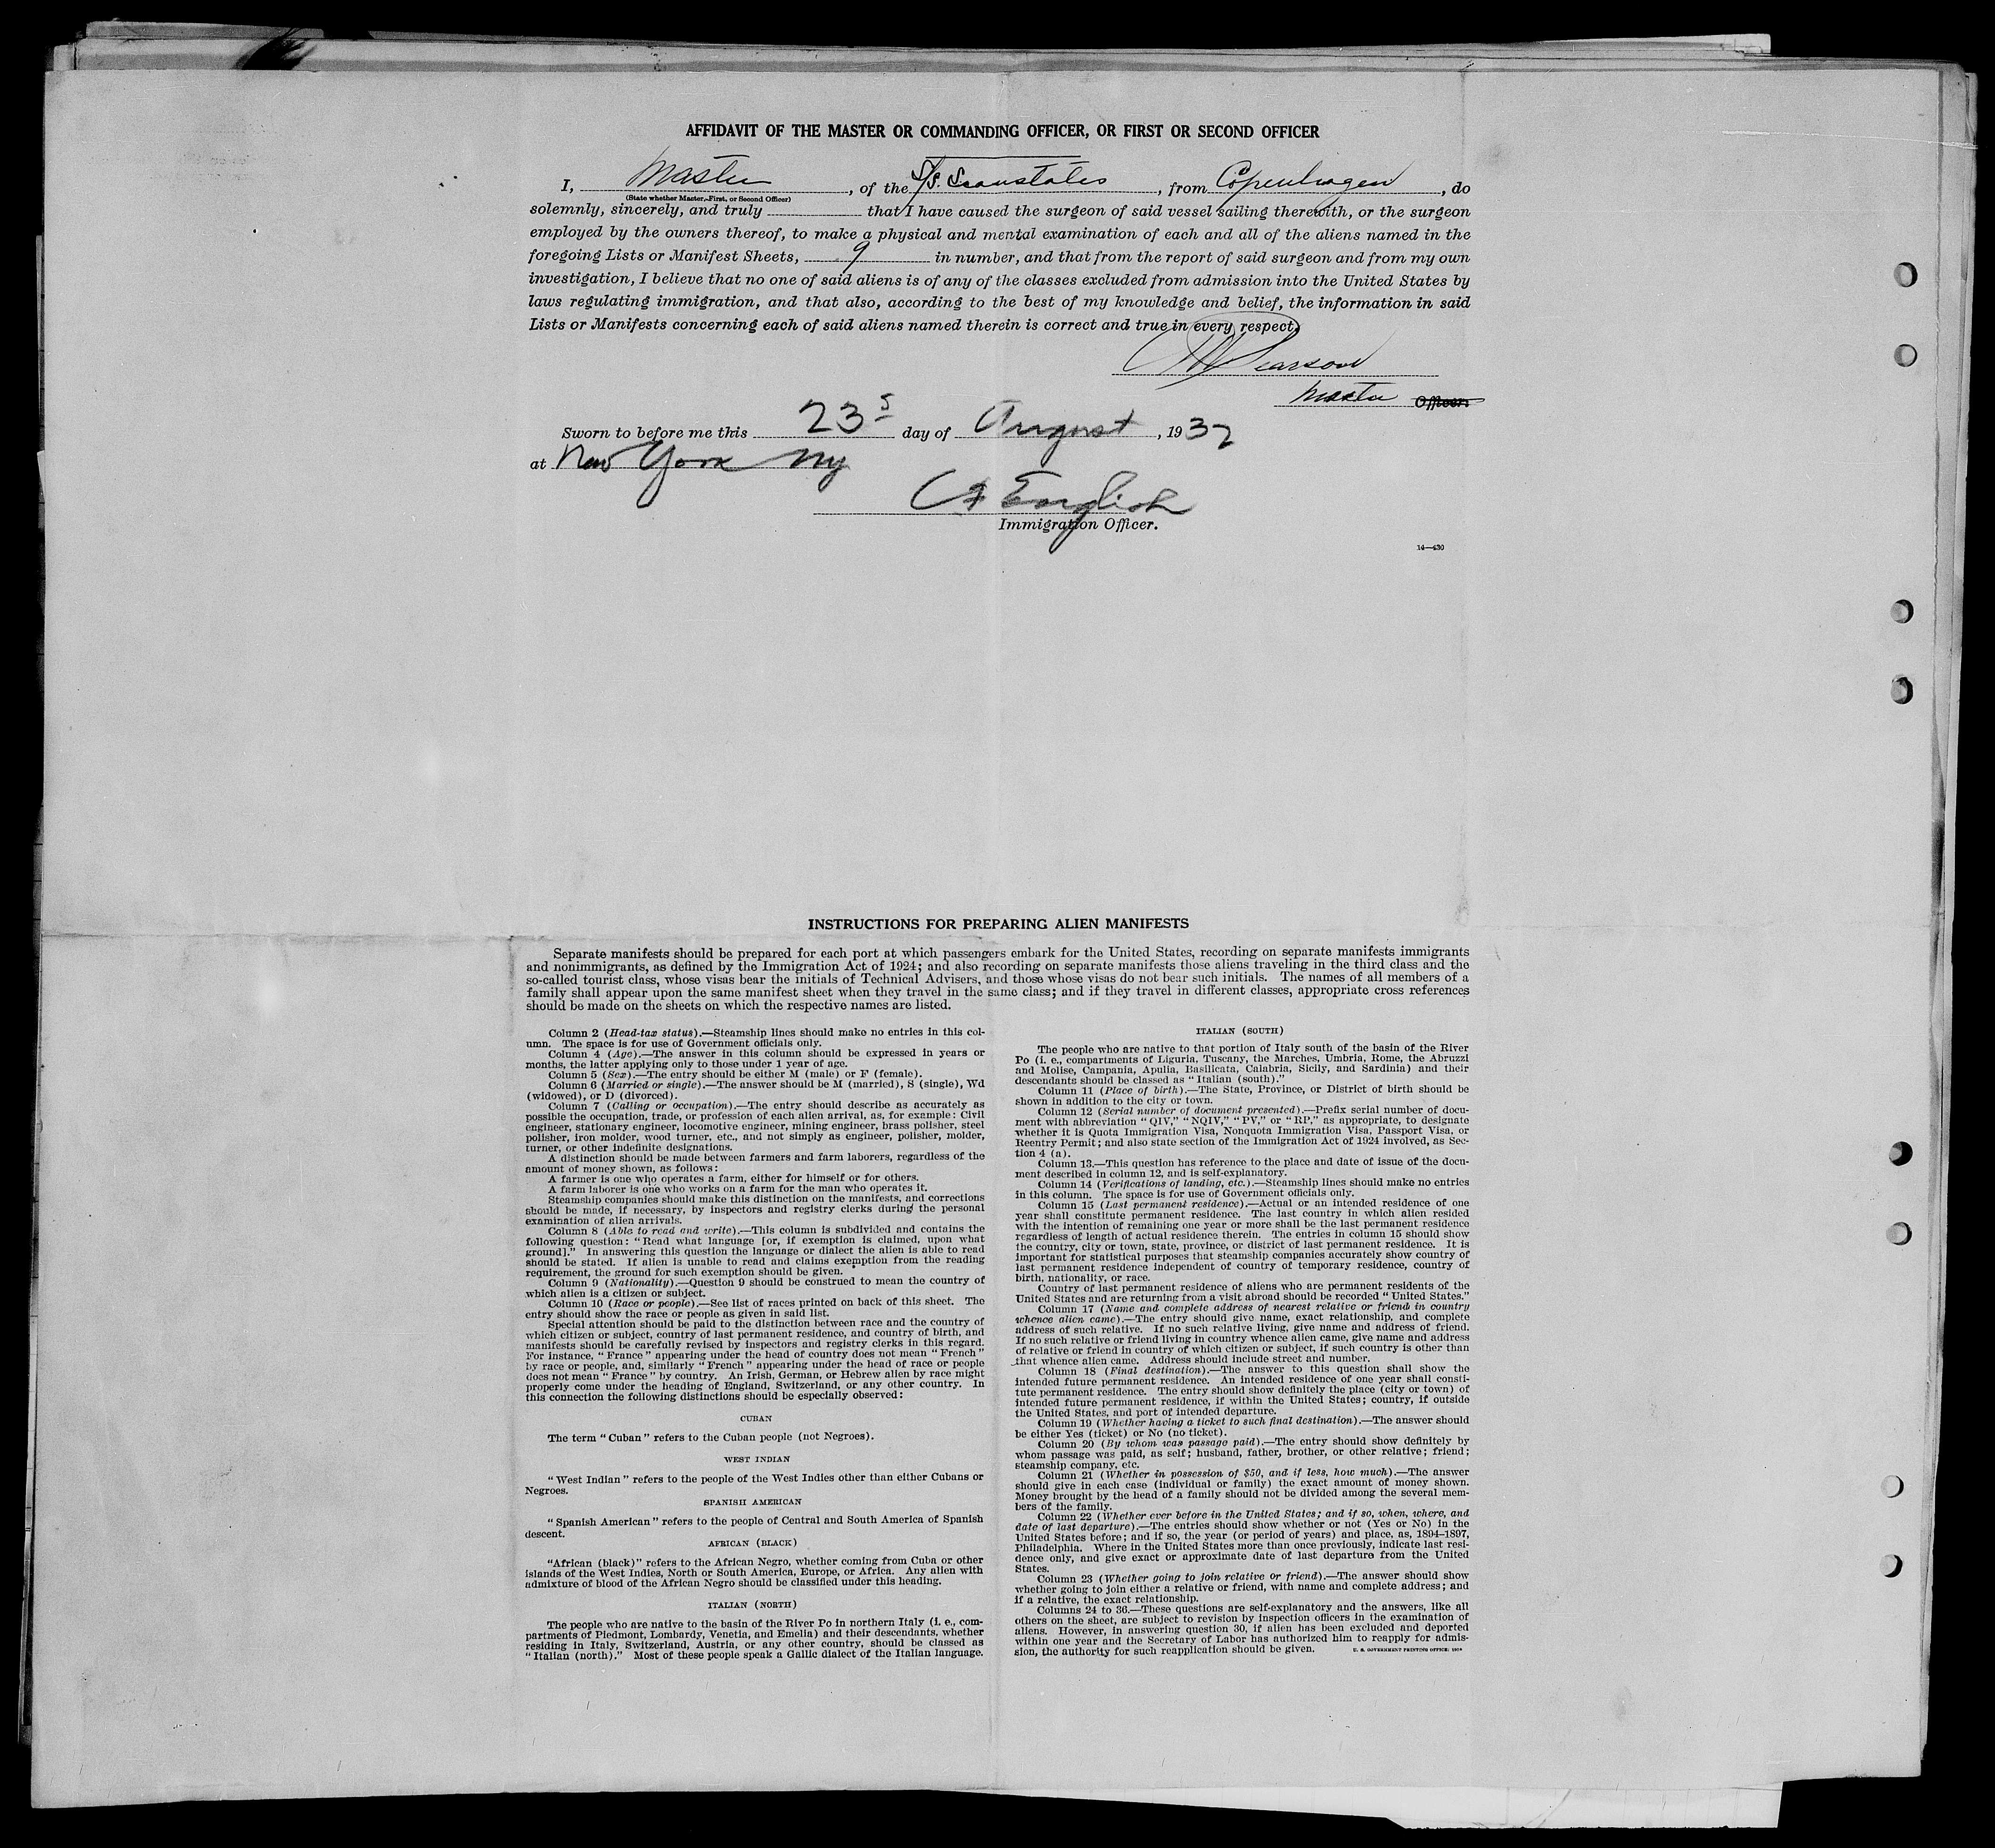 AFFIDAVIT OF THE MASTER OR COMMANDING OFFICER, OR FIRST OR SECOND OFFICER
I, Master, of the S/S. Scanstates, from Copenhagen, do
(State whether Master, First, or Second Officer)
solemnly, sincerely, and truly that I have caused the surgeon of said vessel sailing therewith, or the surgeon
employed by the owners thereof, to make a physical and mental examination of each and all of the aliens named in the
foregoing Lists or Manifest Sheets, 9 in number, and that from the report of said surgeon and from my own
investigation, I believe that no one of said aliens is of any of the classes excluded from admission into the United States by
laws regulating immigration, and that also, according to the best of my knowledge and belief, the information in said
Lists or Manifests concerning each of said aliens named therein is correct and true in every respect.
Master Officer.
Sworn to before me this 23 day of August, 1932
at New York NY
English
Immigration Officer.
14—430
INSTRUCTIONS FOR PREPARING ALIEN MANIFESTS
Separate manifests should be prepared for each port at which passengers embark for the United States, recording on separate manifests immigrants
and nonimmigrants, as defined by the Immigration Act of 1924; and also recording on separate manifests those aliens traveling in the third class and the
so-called tourist class, whose visas bear the initials of Technical Advisers, and those whose visas do not bear such initials. The names of all members of a
family shall appear upon the same manifest sheet when they travel in the same class; and if they travel in different classes, appropriate cross references
should be made on the sheets on which the respective names are listed.
Column 2 (Head-tax status).—Steamship lines should make no entries in this col-
umn. The space is for use of Government officials only.
Column 4 (Age).—The answer in this column should be expressed in years or
months, the latter applying only to those under 1 year of age.
Column 5 (Sex).—The entry should be either M (male) or F (female).
Column 6 (Married or single).—The answer should be M (married), S (single), Wd
(widowed), or D (divorced).
Column 7 (Calling or occupation).—The entry should describe as accurately as
possible the occupation, trade, or profession of each alien arrival, as, for example: Civil
engineer, stationary engineer, locomotive engineer, mining engineer, brass polisher, steel
polisher, iron molder, wood turner, etc., and not simply as engineer, polisher, molder,
turner, or other indefinite designations.
A distinction should be made between farmers and farm laborers, regardless of the
amount of money shown, as follows:
A farmer is one who operates a farm, either for himself or for others.
A farm laborer is one who works on a farm for the man who operates it.
Steamship companies should make this distinction on the manifests, and corrections
should be made, if necessary, by inspectors and registry clerks during the personal
examination of alien arrivals.
Column 8 (Able to read and write).—This column is subdivided and contains the
following question: "Read what language [or, if exemption is claimed, upon what
ground]." In answering this question the language or dialect the alien is able to read
should be stated. If alien is unable to read and claims exemption from the reading
requirement, the ground for such exemption should be given.
Column 9 (Nationality).—Question 9 should be construed to mean the country of
which alien is a citizen or subject.
Column 10 (Race or people).—See list of races printed on back of this sheet. The
entry should show the race or people as given in said list.
Special attention should be paid to the distinction between race and the country of
which citizen or subject, country of last permanent residence, and country of birth, and
manifests should be carefully revised by inspectors and registry clerks in this regard.
For instance, "France" appearing under the head of country does not mean "French"
by race or people, and, similarly "French" appearing under the head of race or people
does not mean "France" by country. An Irish, German, or Hebrew alien by race might
properly come under the heading of England, Switzerland, or any other country. In
this connection the following distinctions should be especially observed:
CUBAN
The term "Cuban" refers to the Cuban people (not Negroes).
WEST INDIAN
"West Indian" refers to the people of the West Indies other than either Cubans or
Negroes.
SPANISH AMERICAN
"Spanish American" refers to the people of Central and South America of Spanish
descent.
AFRICAN (BLACK)
"African (black)" refers to the African Negro, whether coming from Cuba or other
islands of the West Indies, North or South America, Europe, or Africa. Any alien with
admixture of blood of the African Negro should be classified under this heading.
ITALIAN (NORTH)
The people who are native to the basin of the River Po in northern Italy (i. e., com-
partments of Piedmont, Lombardy, Venetia, and Emelia) and their descendants, whether
residing in Italy, Switzerland, Austria, or any other country, should be classed as
"Italian (north)." Most of these people speak a Gallic dialect of the Italian language.
ITALIAN (SOUTH)
The people who are native to that portion of Italy south of the basin of the River
Po (i. e., compartments of Liguria, Tuscany, the Marches, Umbria, Rome, the Abruzzi
and Molise, Campania, Apulia, Basilicata, Calabria, Sicily, and Sardinia) and their
descendants should be classed as "Italian (south)."
Column 11 (Place of birth).—The State, Province, or District of birth should be
shown in addition to the city or town.
Column 12 (Serial number of document presented).—Prefix serial number of docu-
ment with abbreviation "QIV," "NQIV," "PV," or "RP," as appropriate, to designate
whether it is Quota Immigration Visa, Nonquota Immigration Visa, Passport Visa, or
Reentry Permit; and also state section of the Immigration Act of 1924 involved, as Sec-
tion 4 (a).
Column 13.—This question has reference to the place and date of issue of the docu-
ment described in column 12, and is self-explanatory.
Column 14 (Verifications of landing, etc.).—Steamship lines should make no entries
in this column. The space is for use of Government officials only.
Column 15 (Last permanent residence).—Actual or an intended residence of one
year shall constitute permanent residence. The last country in which alien resided
with the intention of remaining one year or more shall be the last permanent residence
regardless of length of actual residence therein. The entries in column 15 should show
the country, city or town, state, province, or district of last permanent residence. It is
important for statistical purposes that steamship companies accurately show country of
last permanent residence independent of country of temporary residence, country of
birth, nationality, or race.
Country of last permanent residence of aliens who are permanent residents of the
United States and are returning from a visit abroad should be recorded "United States."
Column 17 (Name and complete address of nearest relative or friend in country
whence alien came).—The entry should give name, exact relationship, and complete
address of such relative. If no such relative living, give name and address of friend.
If no such relative or friend living in country whence alien came, give name and address
of relative or friend in country of which citizen or subject, if such country is other than
that whence alien came. Address should include street and number.
Column 18 (Final destination).—The answer to this question shall show the
intended future permanent residence. An intended residence of one year shall consti-
tute permanent residence. The entry should show definitely the place (city or town) of
intended future permanent residence, if within the United States; country, if outside
the United States, and port of intended departure.
Column 19 (Whether having a ticket to such final destination).—The answer should
be either Yes (ticket) or No (no ticket).
Column 20 (By whom was passage paid).—The entry should show definitely by
whom passage was paid, as self; husband, father, brother, or other relative; friend;
steamship company, etc.
Column 21 (Whether in possession of $50, and if less, how much).—The answer
should give in each case (individual or family) the exact amount of money shown.
Money brought by the head of a family should not be divided among the several mem-
bers of the family.
Column 22 (Whether ever before in the United States; and if so, when, where, and
date of last departure).—The entries should show whether or not (Yes or No) in the
United States before; and if so, the year (or period of years) and place, as, 1894–1897,
Philadelphia. Where in the United States more than once previously, indicate last resi-
dence only, and give exact or approximate date of last departure from the United
States.
Column 23 (Whether going to join relative or friend).—The answer should show
whether going to join either a relative or friend, with name and complete address; and
if a relative, the exact relationship.
Columns 24 to 36.—These questions are self-explanatory and the answers, like all
others on the sheet, are subject to revision by inspection officers in the examination of
aliens. However, in answering question 30, if alien has been excluded and deported
within one year and the Secretary of Labor has authorized him to reapply for admis-
sion, the authority for such reapplication should be given. U. S. GOVERNMENT PRINTING OFFICE: